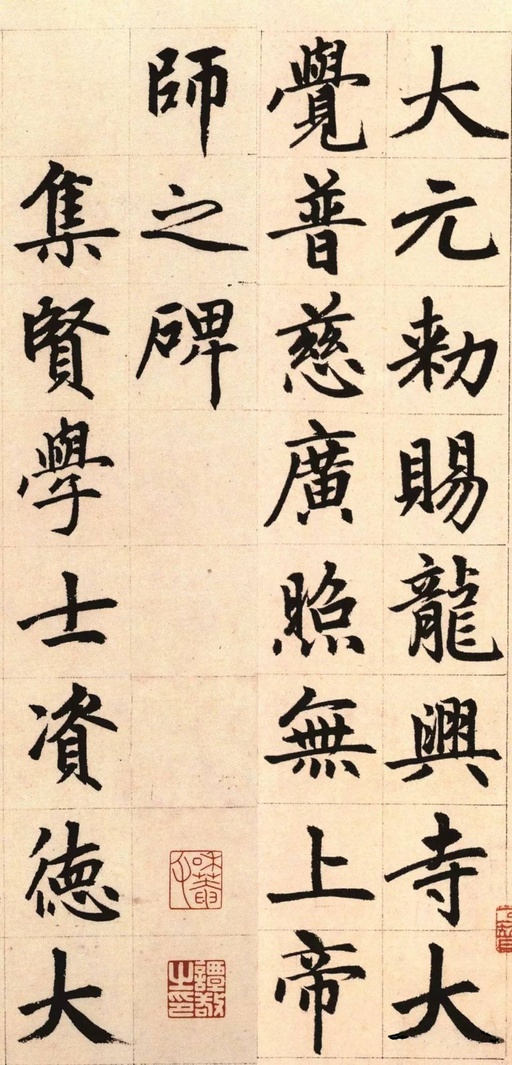 大元勑賜龍興寺大
覺普慈廣照無上帝
師之碑
集賢學士資德大